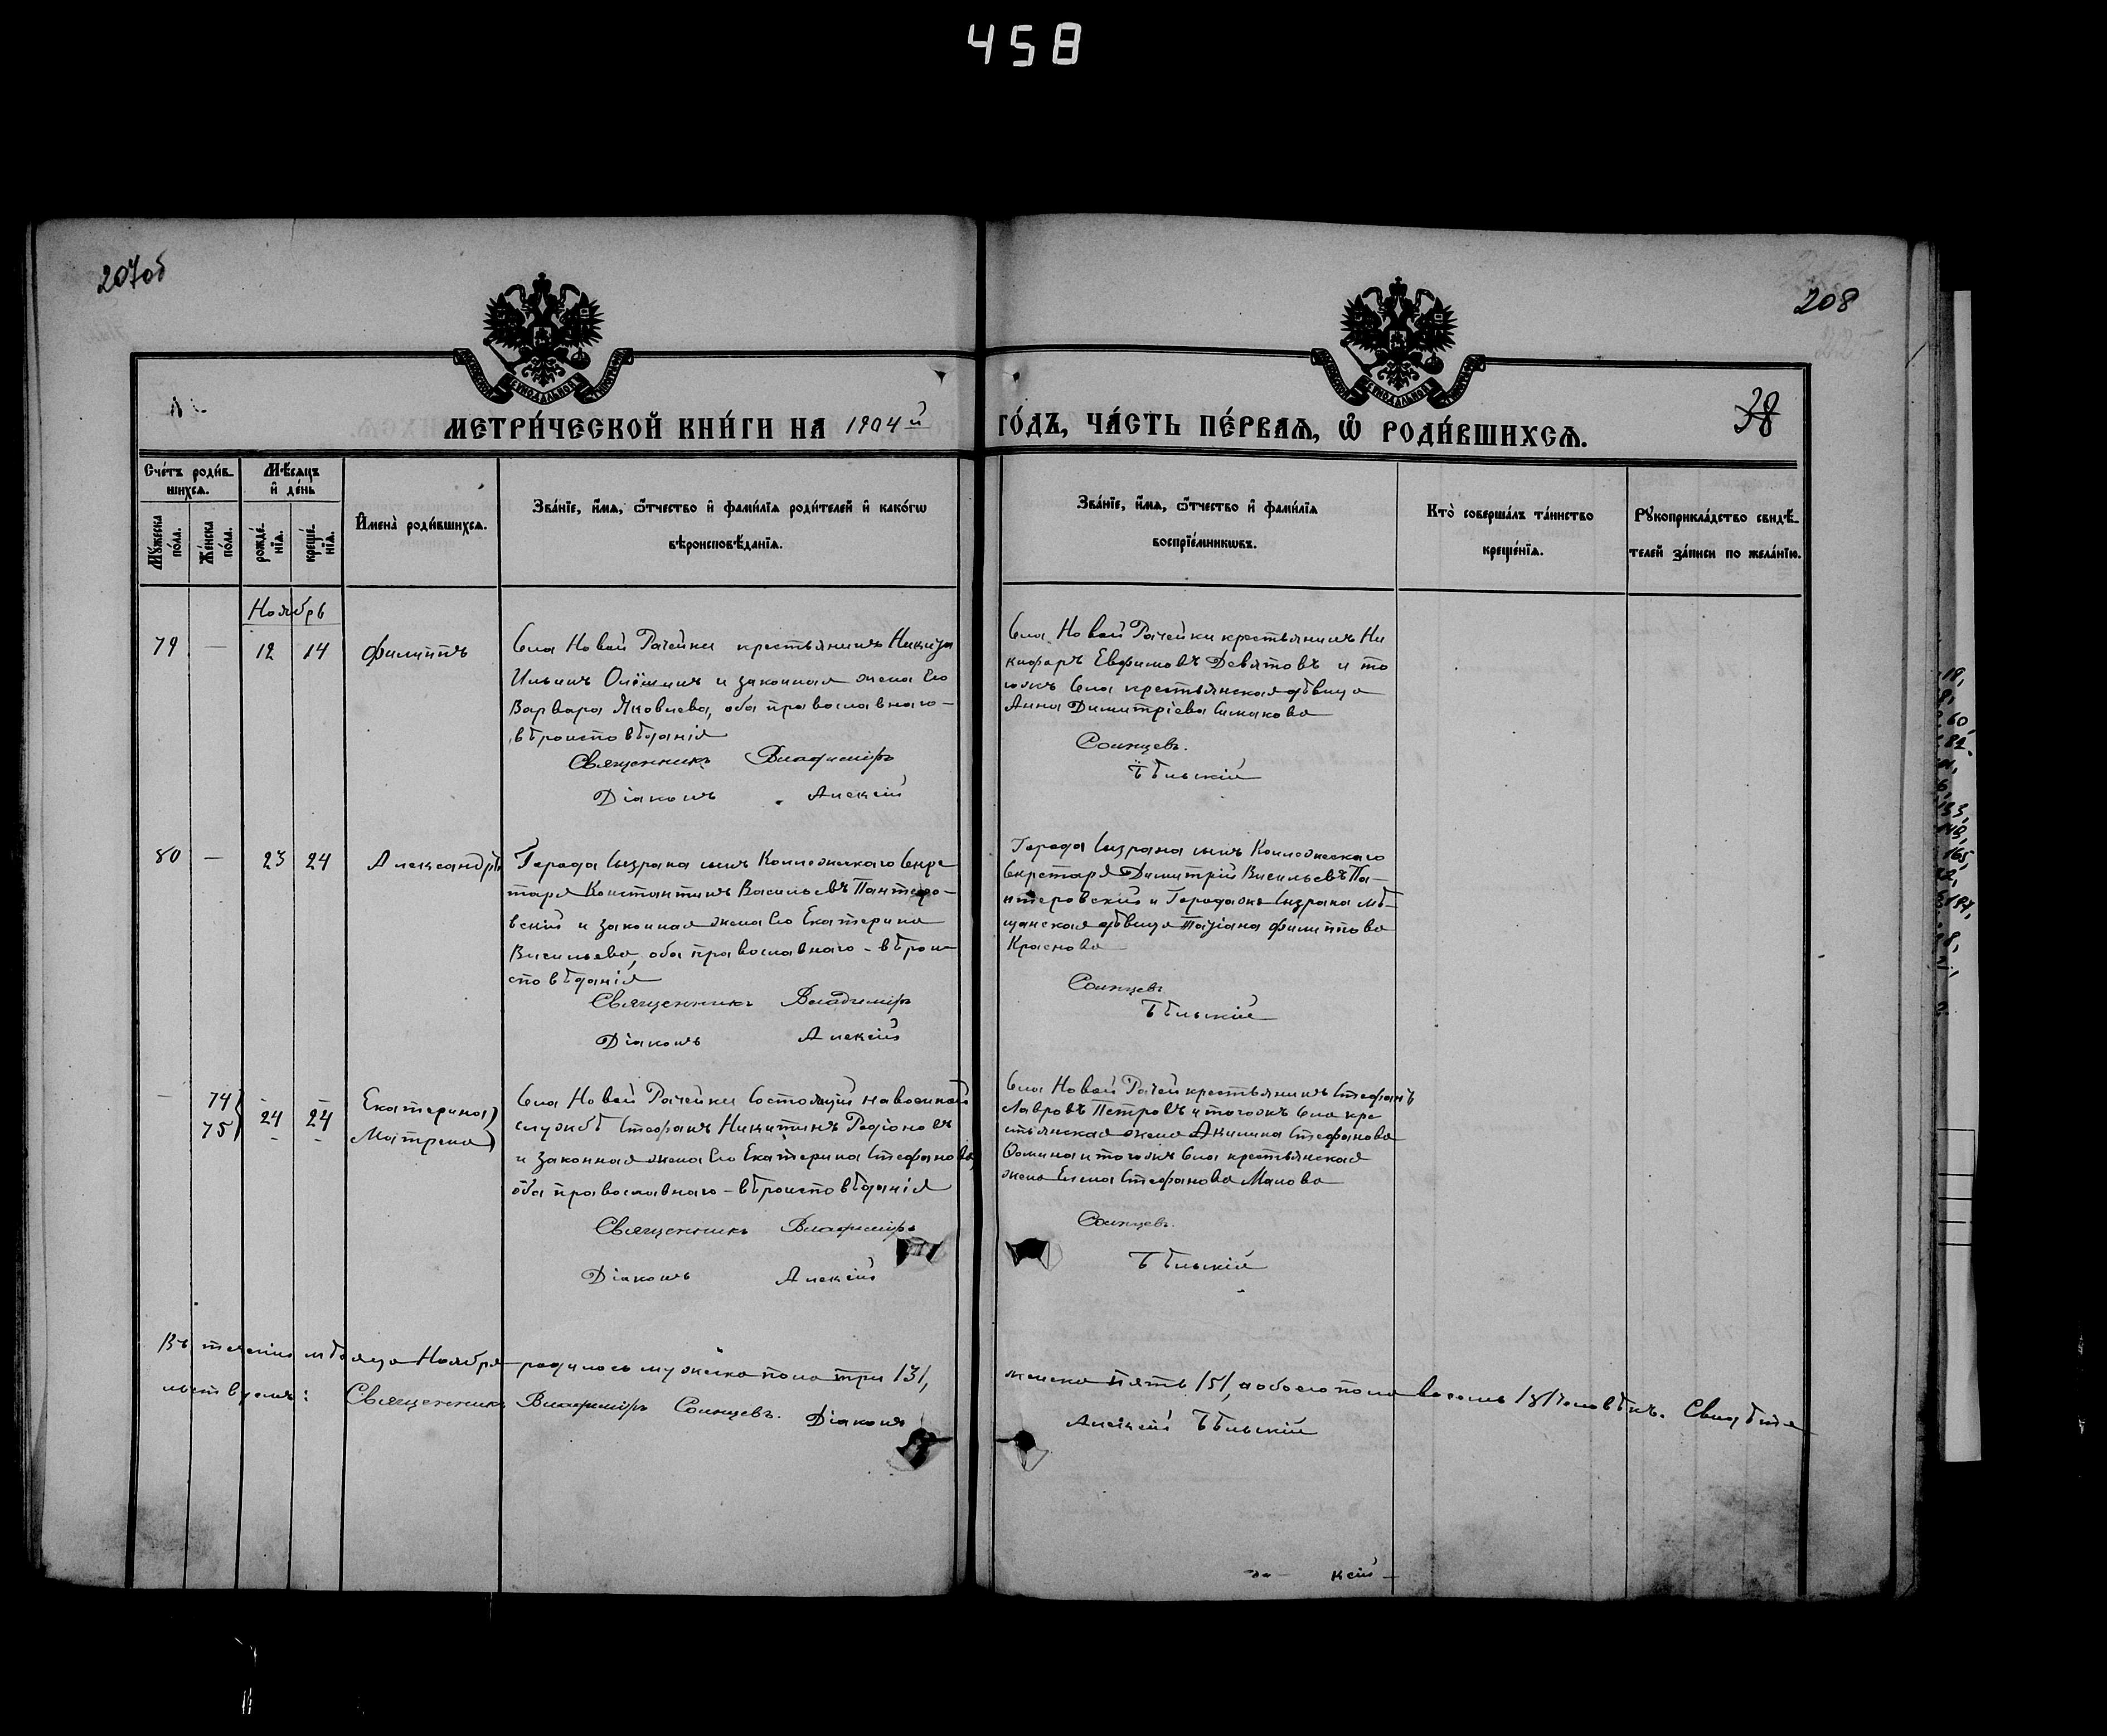 458
207об
208
МЕТРИ́ЧЕСКОЙ КНИ́ГИ НА 1904й ГО́ДЪ, ЧА́СТЬ ПЕ́РВАѦ, Ѽ РОДИ́ВШИХСѦ.
38
Сче́тъ роди́в-
шихсѧ.
Мꙋ́жеска по́ла.
Же́нска по́ла.
Мѣ́сѧцъ
и҆ де́нь
рожде́-нїѧ.
креще́-нїѧ.
И҆мена̀ роди́вшихсѧ.
Зва́нїе, и҆́мѧ, ѻ҆́тчество и҆ фами́лїѧ роди́телей и҆ како́гѡ
вѣроисповѣ́данїѧ.
Зва́нїе, и҆́мѧ, ѻ҆́тчество и҆ фами́лїѧ
воспрїе́мникѡвъ.
Кто̀ соверша́лъ та́инство
креще́нїѧ.
Рꙋкоприкла́дство свидѣ́-
телей за́писи по жела́нїю.
Ноябрь
79 — 12 14 Филиппъ
Села Новой Рачейки крестьянинъ Никита
Ильинъ Олёшинъ и законная жена его
Варвара Яковлева, оба православнаго-
вѣроисповѣданія
Священникъ Владиміръ
Діаконъ Алексій
Села Новой Рачейки крестьянинъ Ни
кифоръ Евфимовъ Девятовъ и то
гожъ села крестьянская дѣвица
Анна Димитріева Симакова
Солнцевъ.
Бѣльскій
80 — 23 24 Александръ
Города Сызрана сынъ Коллежскаго Секре
таря Константинъ Васильевъ Пантеро-
вскій и законная жена его Екатерина
Васильева, оба православнаго-вѣрои
сповѣданія
Священникъ Владиміръ
Діаконъ Алексій
Города Сызрана сынъ Коллежскаго
Секретаря Димитрій Васильевъ Па-
нтеровскій и Города же Сызрана мѣ-
щанская дѣвица Татіана Филиппова
Краснова
Солнцевъ
Бѣльскій
— 74 24 24 Екатерина
75 Матрена
Села Новой Рачейки Состоящій на военной
службѣ Стефанъ Никитинъ Родіоновъ
и законная жена его Екатерина Стефанова,
оба православнаго-вѣроисповѣданія
Священникъ Владиміръ
Діаконъ Алексій
Села Новой Рачей крестьянинъ Стефанъ
Лавровъ Петровъ и тогожъ села кре
стьянская жена Акилина Стефанова
Ѳомина и тогожъ села крестьянская
жена Елена Стефанова Малова
Солнцевъ.
Бѣльскій
Въ теченіи мѣсяца Ноября родилось мужеска пола три /3/, женска пять /5/, а обоего пола восемь /8/ человѣкъ. Свидѣте
льствуемъ: Священникъ Владиміръ Солнцевъ. Діаконъ Алексій Бѣльскій